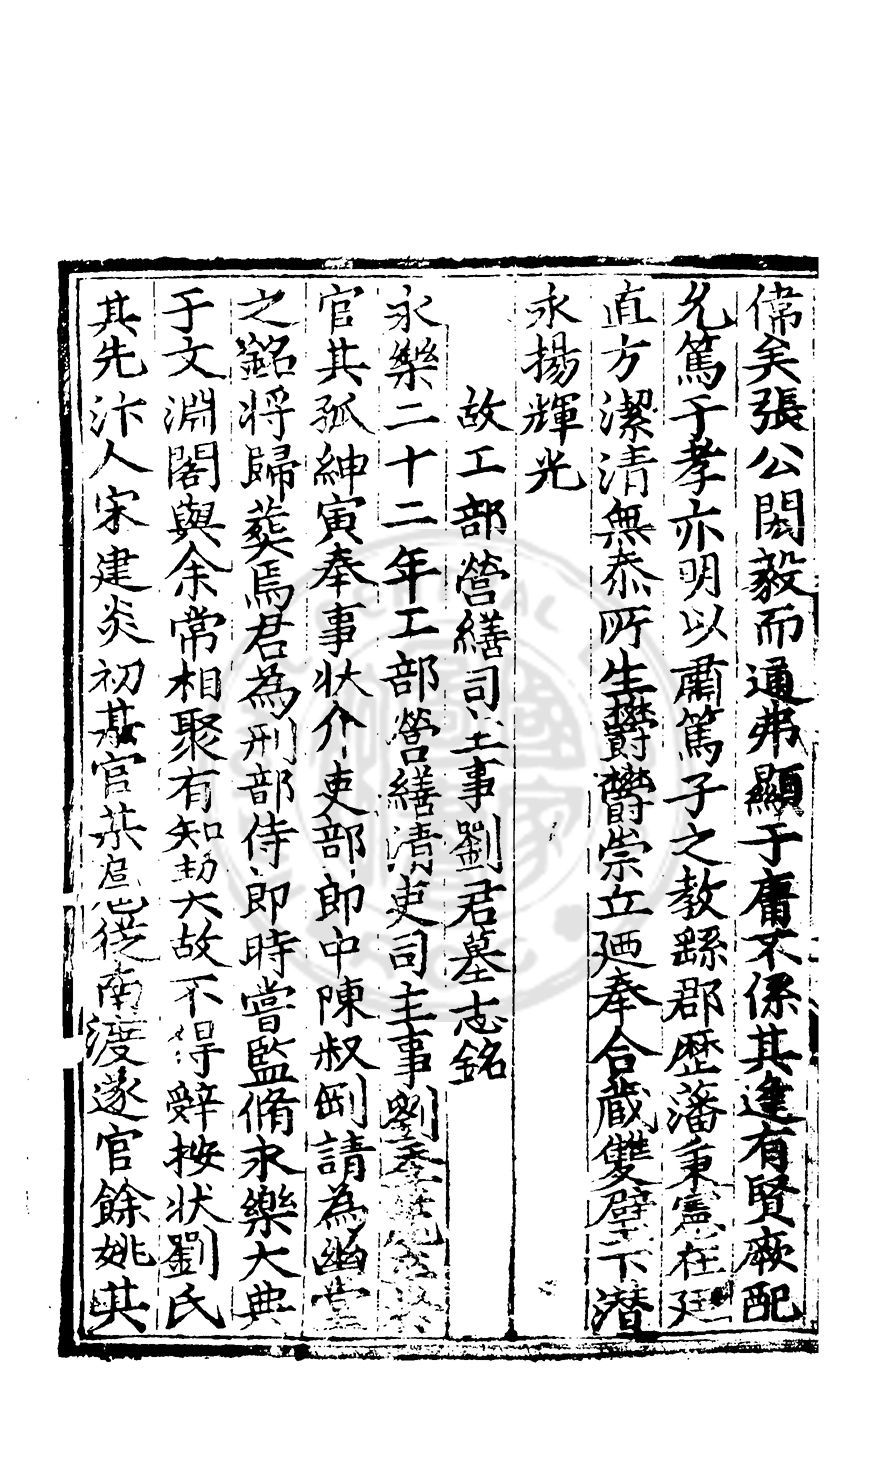 偉矣張公閎毅而通弗顯于庸不係其逢有賢厥配
允篤于孝亦明以肅篤子之教繇郡歷藩秉憲在廷
直方潔清無忝所生欝欝崇丘廼奉合葳雙璧下潛
永揚輝光
故工部營繕司主事劉君墓志銘
永樂二十二年工部營繕清吏司主事劉
官其孤紳寅奉事狀介吏部郎中陳叔剛請為幽堂
之銘将歸葬焉君為刑部侍郎時嘗監脩永樂大典
于文淵閣與余常相聚有知
大故不得辭按状劉氏
其先汴人宋建炎初
官
從南渡遂官餘姚其